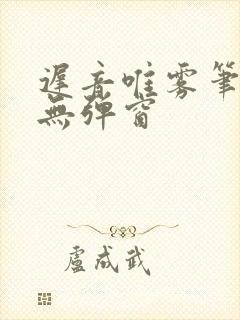 遲音唯雾筆
無弹窗
盧成武